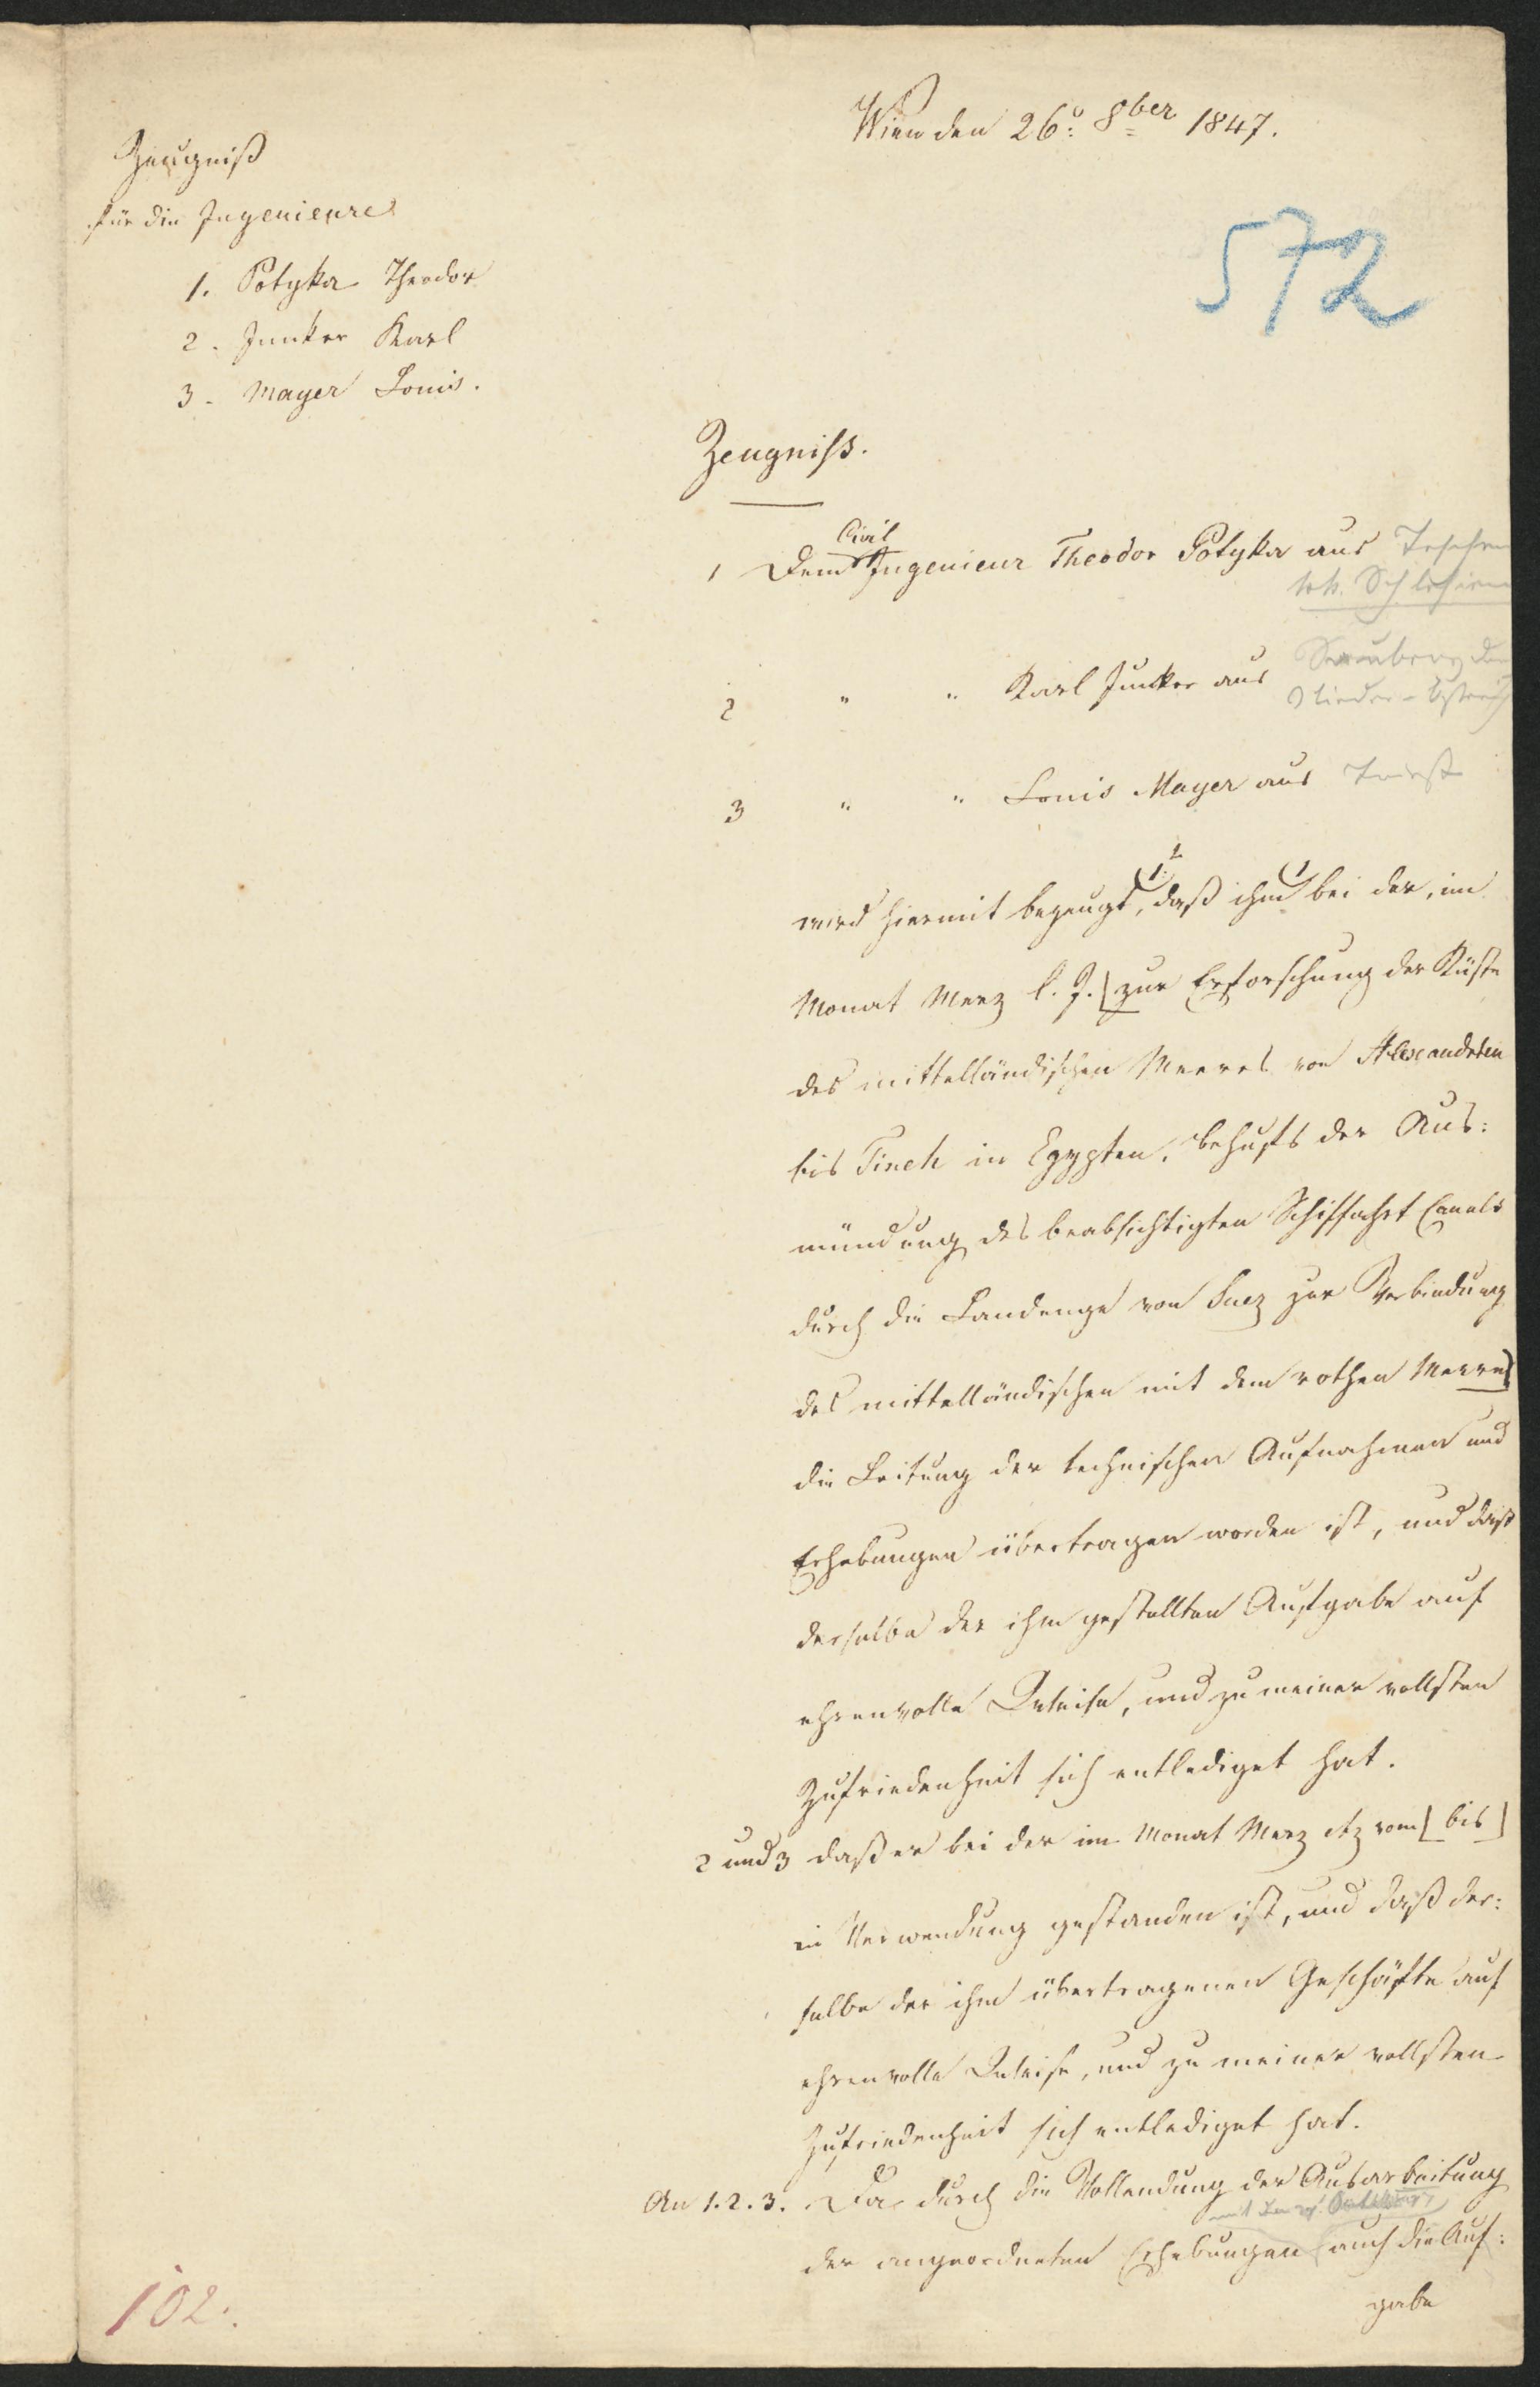 Wien den 26. 8ber 1847.
Zeugniß
für die Ingenieure
1. Potyka Theodor
2. Junker Karl
3. Mayer Louis.
572
Zeugniss.
Civil
1 Dem Ingenieur Theodor Potyka aus Teschen
k.k. Schlesien
2 " " Karl Junker aus
Nieder-Östreich
3 " " Louis Mayer aus Triest
wird hiermit bezeugt, daß ihm bei der, im
Monat Merz l. J. [zur Erforschung der Küste
des mittelländischen Meeres von Alexandrien
bis Tineh in Egypten, behufs der Aus:
mündung des beabsichtigten Schiffahrt Canals
durch die Landenge von Suez zur Verbindung
des mittelländischen mit dem rothen Meere]
die Leitung der technischen Aufnahmen und
Erhebungen übertragen worden ist, und daß
derselbe der ihm gestellten Aufgabe auf
ehrenvolle Weise, und zu meiner vollsten
Zufriedenheit sich entlediget hat.
2 und 3 daß er bei der im Monat Merz etz vom [bis]
in Verwendung gestanden ist, und daß der:
selbe der ihm übertragenen Geschäfte auf
ehrenvolle Weise, und zu meiner vollsten
Zufriedenheit sich entlediget hat.
An 1. 2. 3. Da durch die Vollendung der Ausarbeitung
mit den
der angeordneten Erhebungen auch die Auf:
gabe
102.